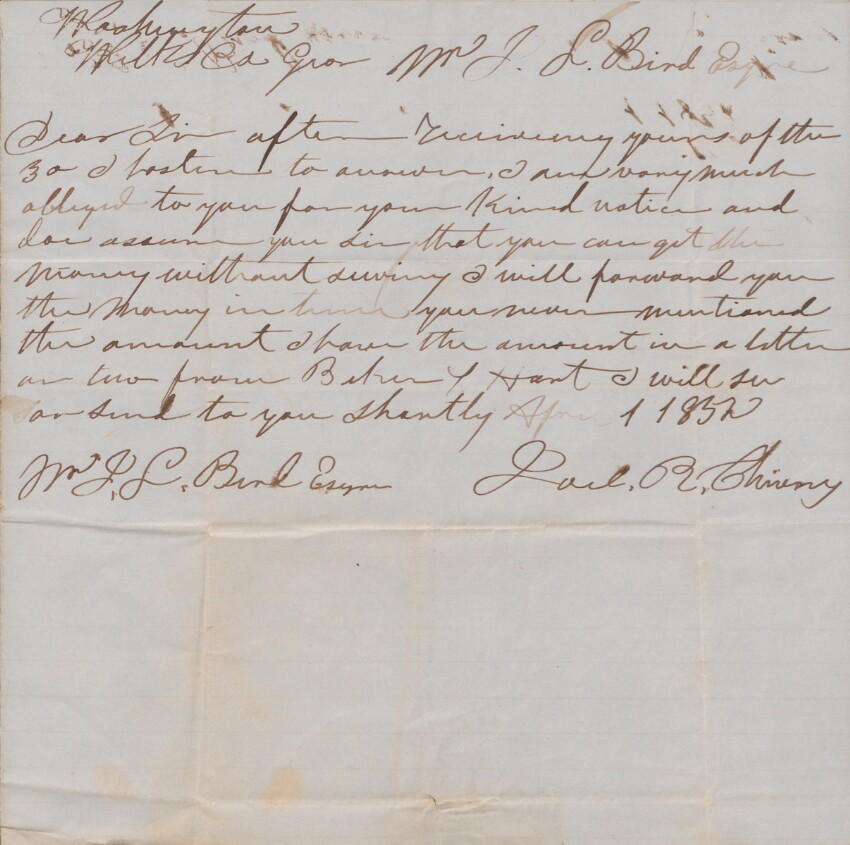 Washington
Wilks Co Geor Mr J. L. Bird Esqire
Dear Sir after receiveing yours of the
30 I hasten to answer, I am vary much
obleged to you for your kind notice and
doe assure you sir that you can get the
money without suing I will forward you
the money in time you never mentioned
the amount I have the amount in a letter
or two from Baker & Hart I will see
or send to you shortly April 1 1852
Mr J. L. Bird Esqire Joel. R.